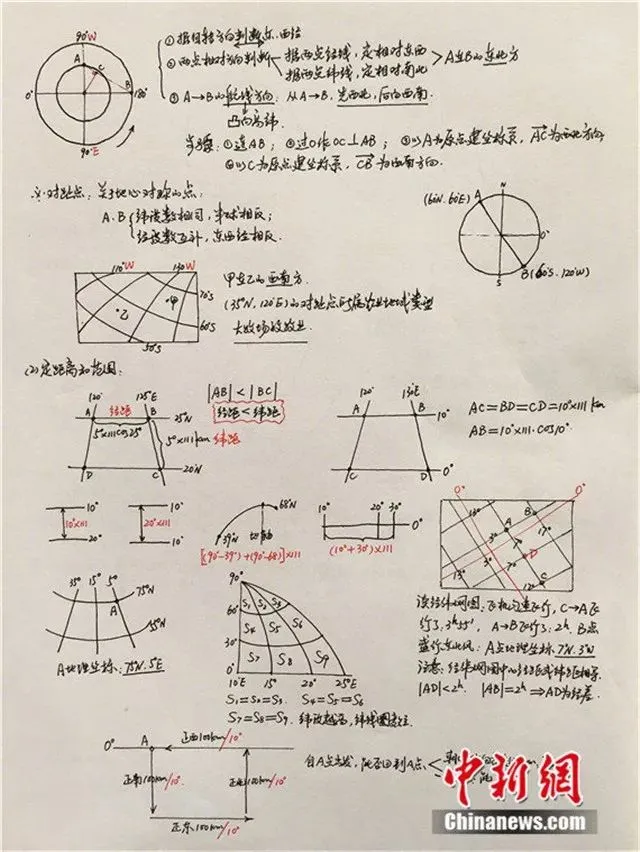 90°W
A
C
B
0°
180°
90°E
①据自转方向判断东、西经
②两点相对方向判断
据两点经线,定相对东西
据两点纬线,定相对南北
A在B的东北方
③A→B的航线方向:从A→B,先西北,后向西南.
凸向高纬.
步骤:①连AB;②过O作OC⊥AB;③以A为原点建坐标系,AC为西北方向
④以C为原点建坐标系,CB为西南方向.
对跖点:关于地心对称的点:
A.B
纬度数相同,半球相反;
经度数互补,东西经相反.
(60N.60E)
A
N
0°
S
B(60°S.120°W)
110°W
130°W
甲
乙
70°S
60°S
50°S
甲在乙的西南方.
(35°N,120°E)的对跖点所属农业地域类型
大牧场放牧业.
(2)定距离和范围:
120°
125°E
A
经距
B
25°N
5°×111cos25°
5°×111km
纬距
D
C
20°N
|AB|<|BC|
经距<纬距
120°
130°E
A
B
10°
C
D
0°
AC=BD=CD=10°×111km
AB=10°×111·cos10°
10°
10°×111
20°
10°
20°×111
10°
39°N
68°N
[(90°-39°)+(90°-68)]×111
20°
30°
10°
0°
(10°+30°)×111
0°
0°
13°
B
A
3°
17°
7°
3°
D
13°
7°
C
12°
35°
15°
5°
75°N
A
55°N
A地理坐标:75°N.5°E
90°
60°
30°
0°
S1
S2
S3
S4
S5
S6
S7
S8
S9
10°E
15°
20°
25°E
S1=S2=S3. S4=S5=S6
S7=S8=S9. 纬度越高,纬线圈越短
该经纬网图:飞机匀速飞行,C→A飞
行了3h55′,A→B飞行了2h.B点
盛行东北风.A点地理坐标7°N.3°W
注意:经纬网图中心经线纬线相等.
|AD|<2h |AB|=2h⇒AD为经差.
0°
A
正西100km/10°
正南100km/10°
正北100km/10°
正东100km/10°
自A点出发,能否回到A点
中新網
Chinanews.com